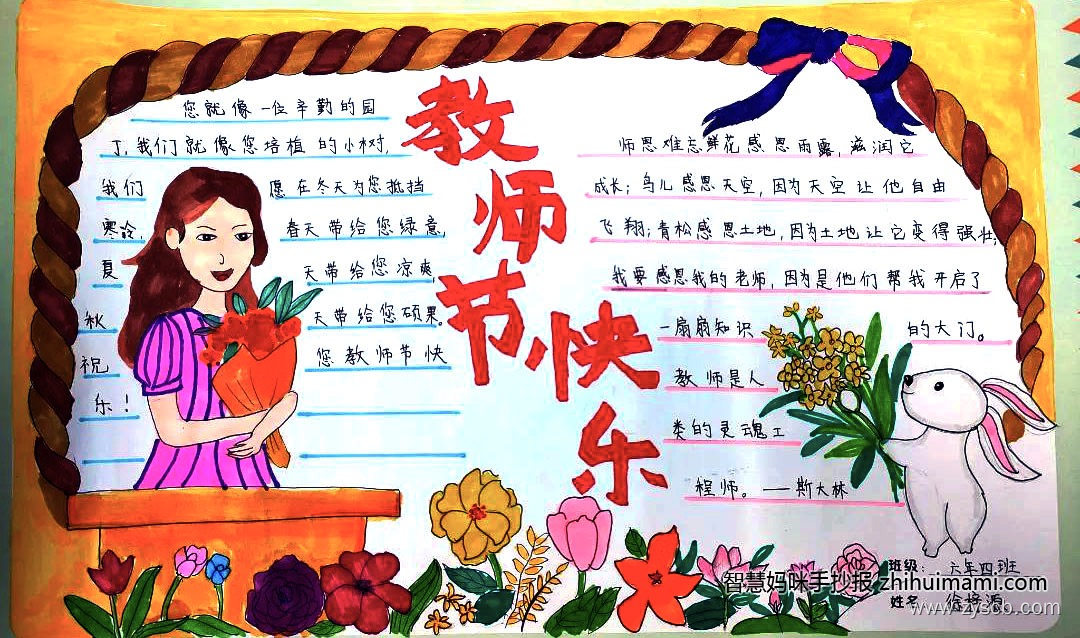 教师节快乐
您就像一位辛勤的园
丁,我们就像您培植的小树,
我们愿在冬天为您抵挡
寒冷,春天带给您绿意,
夏天带给您凉爽,
秋天带给您硕果。
祝您教师节快
乐!
师恩难忘鲜花感恩雨露,滋润它
成长;鸟儿感恩天空,因为天空让他自由
飞翔;青松感恩土地,因为土地让它变得强壮;
我要感恩我的老师,因为是他们帮我开启了
一扇扇知识的大门。
教师是人
类的灵魂工
程师。——斯大林
班级: 六年四班
智慧妈咪手抄报 zhihuimami.com
姓名
www.zyscb.com